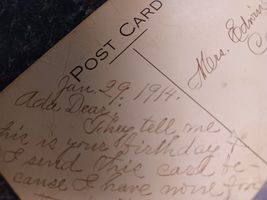 POST CARD
Jan. 29, 1914.
Ada Dear,
They tell me
this is your birthday &
I send this card be-
cause I have none for
Mrs. Edwin